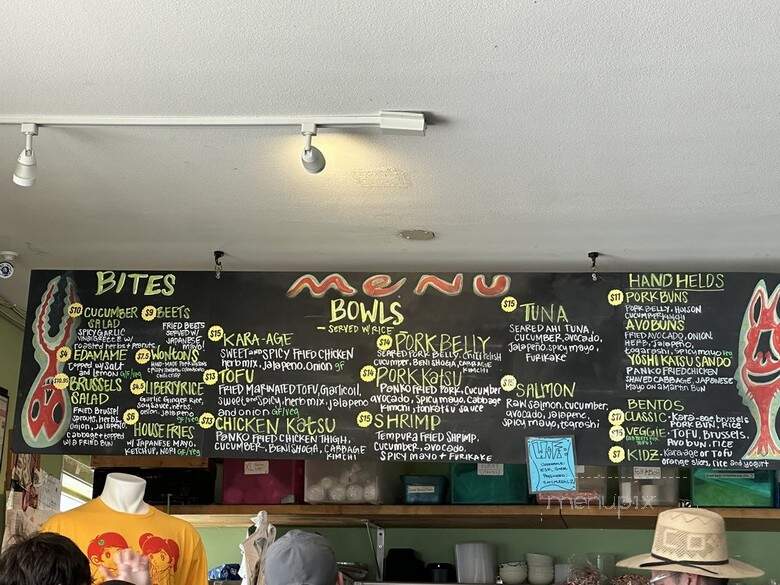 MENU
BITES
$10 CUCUMBER
SALAD
SPICY GARLIC
VINAIGRETTE w/
roasted herbs + peanuts
$4 EDAMAME
topped w/ salt
and lemon
$10.95 BRUSSELS
SALAD
FRIED BRUSSEL
sprouts, herbs,
onion, Jalapeño
cabbage + topped
w/ a FRIED BUN
$9 BEETS
FRIED BEETS
SERVED w/
JAPANESE
MAYO
WONTONS
LIBERTY RICE
Garlic Ginger RICE,
Soy sauce, herbs,
onion, Jalapeño
$6 HOUSE FRIES
w/ JAPANESE MAYO,
KETCHUP, NORI GF/VEG
BOWLS
- SERVED w/ RICE -
$15 KARA-AGE
SWEET and SPICY FRIED CHICKEN
herb mix, jalapeno, onion gf
$13 TOFU
FRIED MARINATED TOFU, Garlic oil,
sweet and spicy, herb mix, jalapeno
and onion GF/VEG
CHICKEN KATSU
PANKO FRIED CHICKEN THIGH,
CUCUMBER, BENI SHOGA, CABBAGE
KIMCHI
PORK BELLY
SEARED PORK BELLY,
cucumber, Beni SHOGA, CABBAGE
KIMCHI
$14 PORK KATSU
PANKO FRIED PORK, cucumber
avocado, spicy mayo, cabbage
kimchi, tonkatsu sauce
$15 SHRIMP
TEMPURA FRIED SHRIMP,
CUCUMBER, avocado,
SPICY MAYO + FURIKAKE
$15 TUNA
SEARED AHI TUNA,
CUCUMBER, avocado,
jalapeño, spicy mayo,
FURIKAKE
SALMON
RAW salmon, cucumber
avocado, jalapeño,
spicy mayo, togarashi
HAND HELDS
$11 PORK BUNS
PORK BELLY, HOISON
CUCUMBER, KIMCHI
AVO BUNS
FRIED AVOCADO, ONION,
HERB, JALAPEÑO,
togarashi, spicy mayo
YOSHI KATSU SANDO
PANKO FRIED CHICKEN
SHAVED CABBAGE, JAPANESE
Mayo on a MARTIN BUN
BENTOS
$17 CLASSIC - Kara-age, brussels
PORK BUN, RICE
VEGGIE - TOFU, BRUSSELS,
AVO BUN, RICE
$7 KIDZ - Karaage or TOFU
orange slices, rice and yogurt
menupix